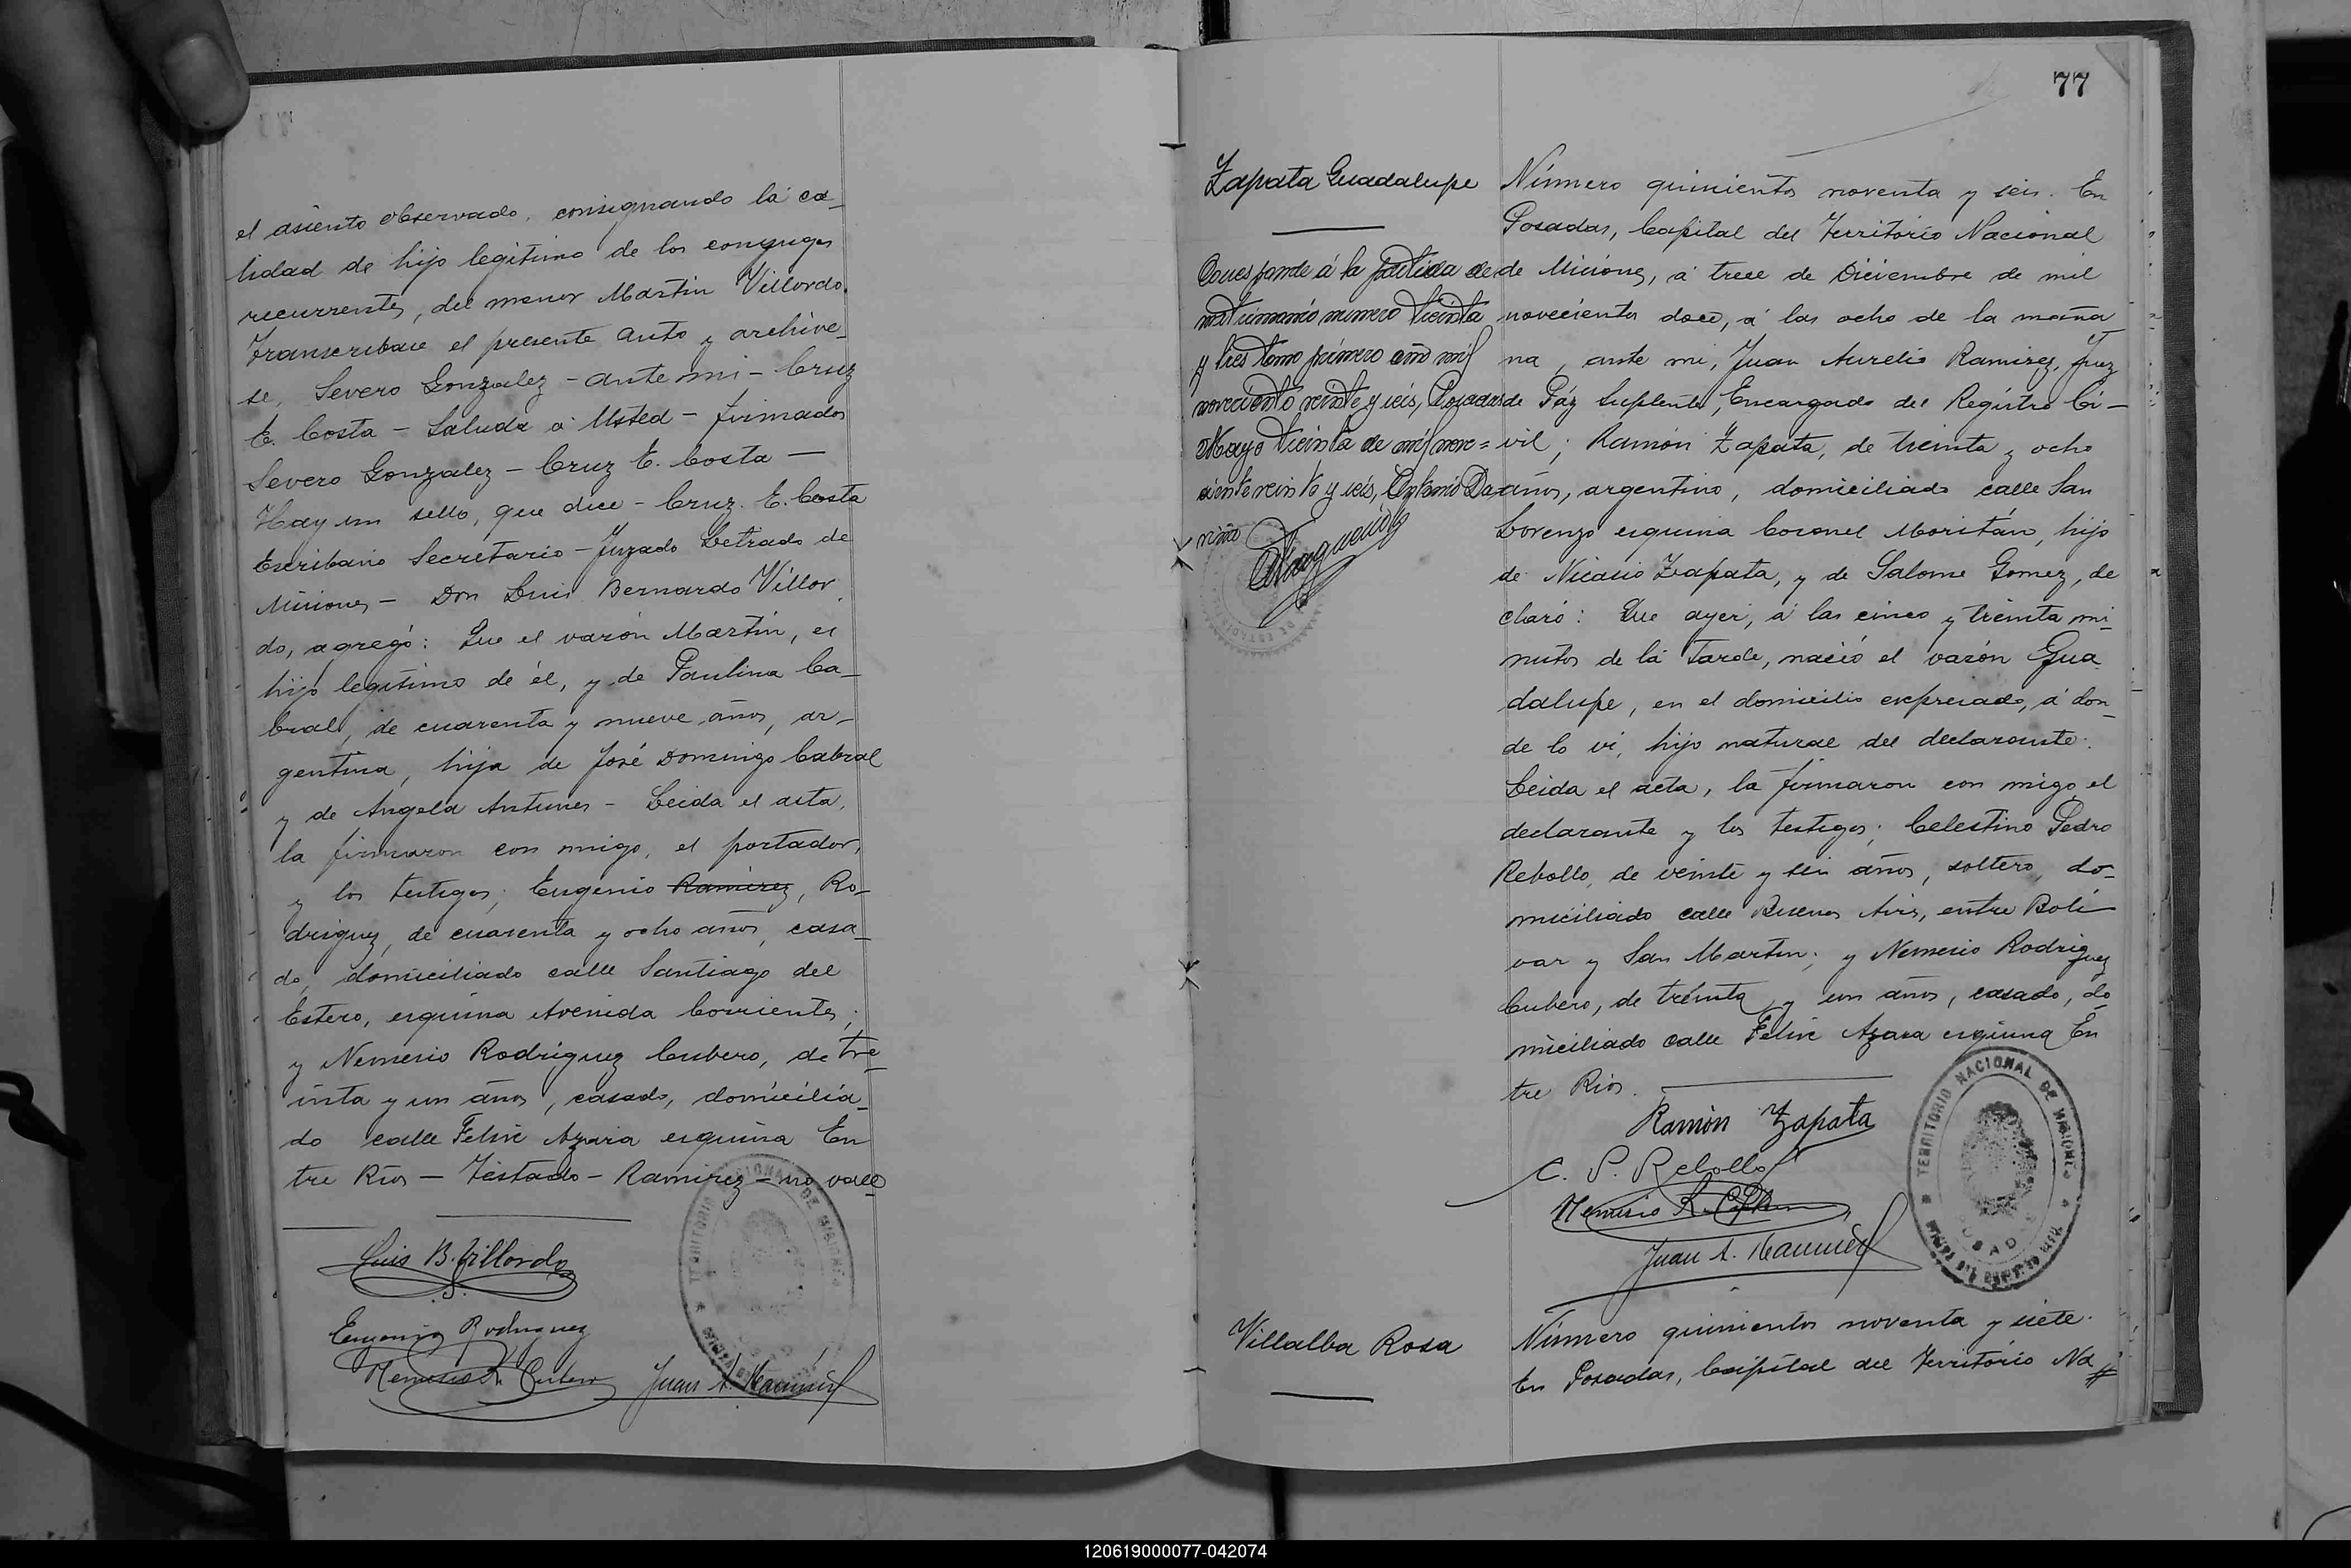 el asiento observado, consignando la ca-
lidad de hijo legítimo de los conyuges
recurrentes, del menor Martin Villordo.
Transcribase el presente auto y archive-
se, Severo Gonzalez - ante mi - Cruz
E. Costa - Saluda a Usted - firmados
Severo Gonzalez - Cruz E. Costa -
Hay un sello, que dice - Cruz. E. Costa
Escribano Secretario - Juzado Letrado de
Misiones - Don Luis Bernardo Villor
do, agregó: Que el varón Martin, es
hijo legítimo de él, y de Paulina Ca-
bral, de cuarenta y nueve años, ar-
gentina, hija de José Domingo Cabral
y de Angela Antunes - Leida el acta,
la firmaron con migo, el portador,
y los testigos; Eugenio Ramirez, Ro-
driguez, de cuarenta y ocho años, casa-
do, domiciliado calle Santiago del
Estero, esquina Avenida Corrientes;
y Nemesio Rodriguez Cubero, de tre-
inta y un años, casado, domicilia-
do calle Felix Azara esquina En
tre Rios - Testado - Ramirez - no vale
Luis B. Villordo
Eugenio Rodriguez
Nemesio R. Cubero Juan A. Ramirez
77
Zapata Guadalupe
Corresponde á la partida de
matrimonio numero treinta
y tres tomo primero año mil
novecientos veinte y seis, Posadas
Mayo treinta de mil nove=
ciento veinte y seis,
Número quinientos noventa y seis. En
Posadas, Capital del Territorio Nacional
de Misiones, á trece de Diciembre de mil
novecientos doce, á las ocho de la maña
na, ante mi, Juan Aurelio Ramirez, Juez
de Páz Suplente, Encargado del Registro Ci-
vil; Ramón Zapata, de treinta y ocho
años, argentino, domiciliado calle San
Lorenzo esquina Coronel Moritán, hijo
de Nicasio Zapata, y de Salome Gomez, de
claró: Que ayer, á las cinco y treinta mi-
nutos de la tarde, nació el varón Gua
dalupe, en el domicilio expresado, á don-
de lo vi, hijo natural del declarante.
Leida el acta, la firmaron con migo, el
declarante y los testigos; Celestino Pedro
Rebollo, de veinte y seis años, soltero, do-
miciliado calle Buenos Aires, entre Boli-
var y San Martin; y Nemesio Rodriguez
Cubero, de treinta y un años, casado, do
miciliado calle Felix Azara esquina En
tre Rios.
Ramón Zapata
C. P. Rebollo
Nemesio R. Cubero
Juan A. Ramirez
TERRITORIO NACIONAL DE MISIONES
POSADAS
Villalba Rosa
Número quinientos noventa y siete.
En Posadas, Capital del Territorio Na
120619000077-042074